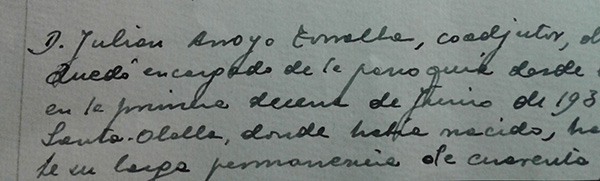 D. Julian Arroyo Torralba, coadjutor, d
Quedó encargado de la parroquia desde
en la primera decena de Junio de 193
Santa-Olalla, donde había nacido, ha
te su larga permanencia de cuarenta